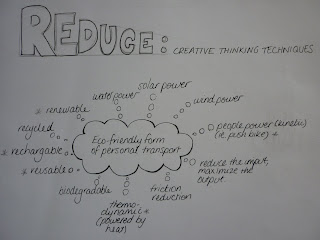 REDUCE: CREATIVE THINKING TECHNIQUES
solar power
water power
wind power
* renewable
people power (kinetic)
(ie. push bike) *
recycled
Eco-friendly form
of personal transport
* rechargable
reduce the input,
maximise the
output.
* reusable
biodegradable
friction
reduction
thermo-
dynamic *
(powered by
heat)